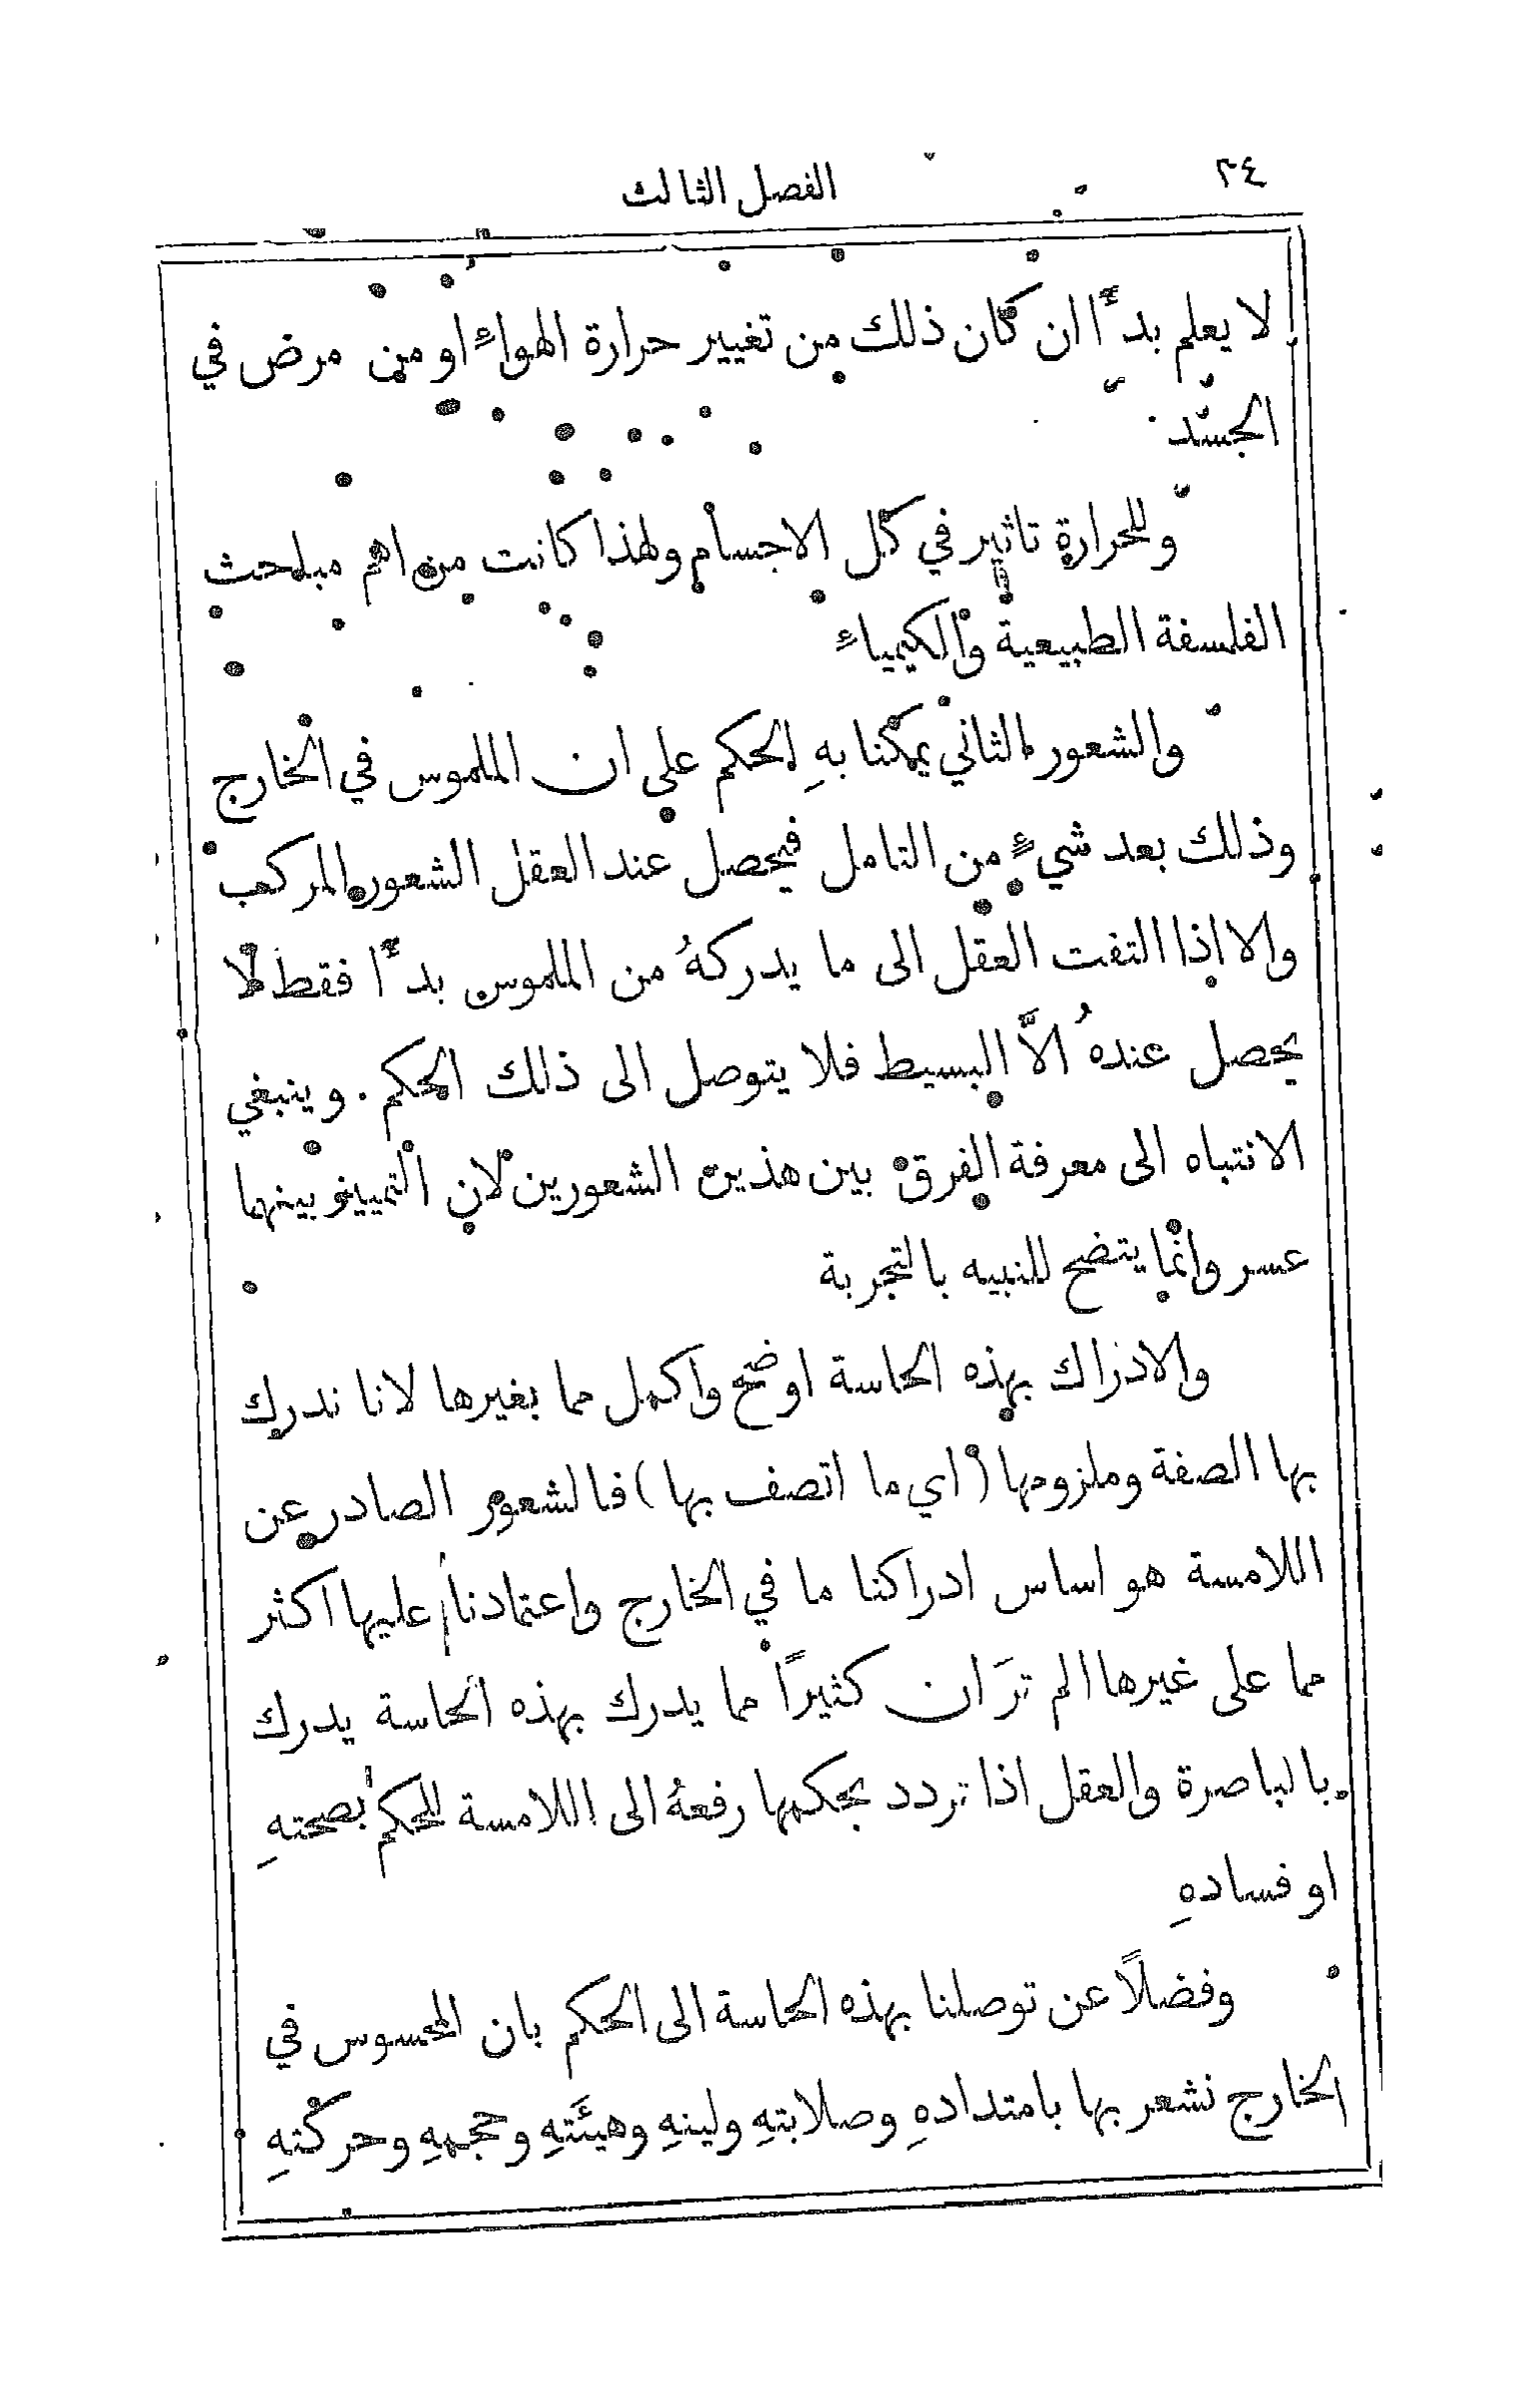 ٢٤ الفصل الثالث
لا يعلم بدءًا ان كان ذلك من تغيير حرارة الهواءِ او من مرض في
الجسد
وللحرارة تاثير في كل الاجسام ولهذا كانت من اهم مباحث
الفلسفة الطبيعية والكيمياءِ
والشعور الثاني يمكننا بهِ الحكم على ان الملموس في الخارج
وذلك بعد شيءٍ من التامل فيحصل عند العقل الشعور المركب
والا اذا التفت العقل الى ما يدركهُ من الملموس بدءًا فقط لا
يحصل عندهُ الَّا البسيط فلا يتوصل الى ذلك الحكم. وينبغي
الانتباه الى معرفة الفرق بين هذين الشعورين لان التمييز بينهما
عسر وانما يتضح للنبيه بالتجربة
والادراك بهذه الحاسة اوضح واكمل مما بغيرها لاننا ندرك
بها الصفة وملزومها (اي ما اتصف بها) فالشعور الصادر عن
اللامسة هو اساس ادراكنا ما في الخارج واعتمادنا عليها اكثر
مما على غيرها الم ترَ ان كثيرًا مما يدرك بهذه الحاسة يدرك
بالباصرة والعقل اذا تردد بحكمها رفعهُ الى اللامسة للحكم بصحتهِ
او فسادهِ
وفضلًا عن توصلنا بهذه الحاسة الى الحكم بان المحسوس في
الخارج نشعر بها بامتدادهِ وصلابتهِ ولينهِ وهيئَتهِ وحجمهِ وحركتهِ